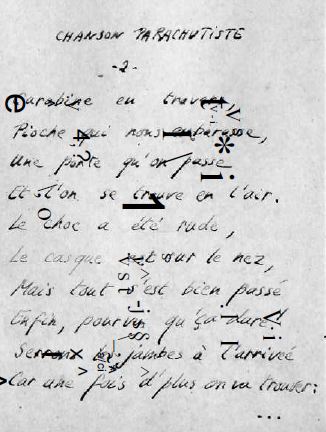 CHANSON PARACHUTISTE
-2-
Carabine en travers,
Pioche qui nous embarasse,
Une porte qu'on passe
Et l'on se trouve en l'air.
Le choc a été rude,
Le casque est sur le nez,
Mais tout s'est bien passé
Enfin, pourvu qu'ça dure!
Serrons les jambes à l'arrivée
Car une fois d'plus on va trouver:
...